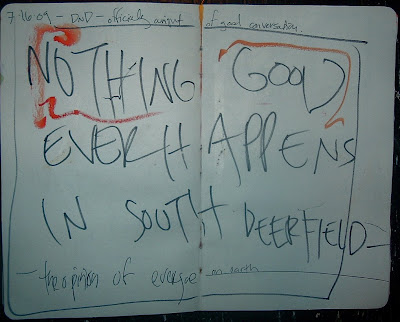 7·16·09 - DnD - officially out of good conversation.
NOTHING GOOD
EVER HAPPENS
IN SOUTH DEERFIELD-
- the opinion of everyone on earth